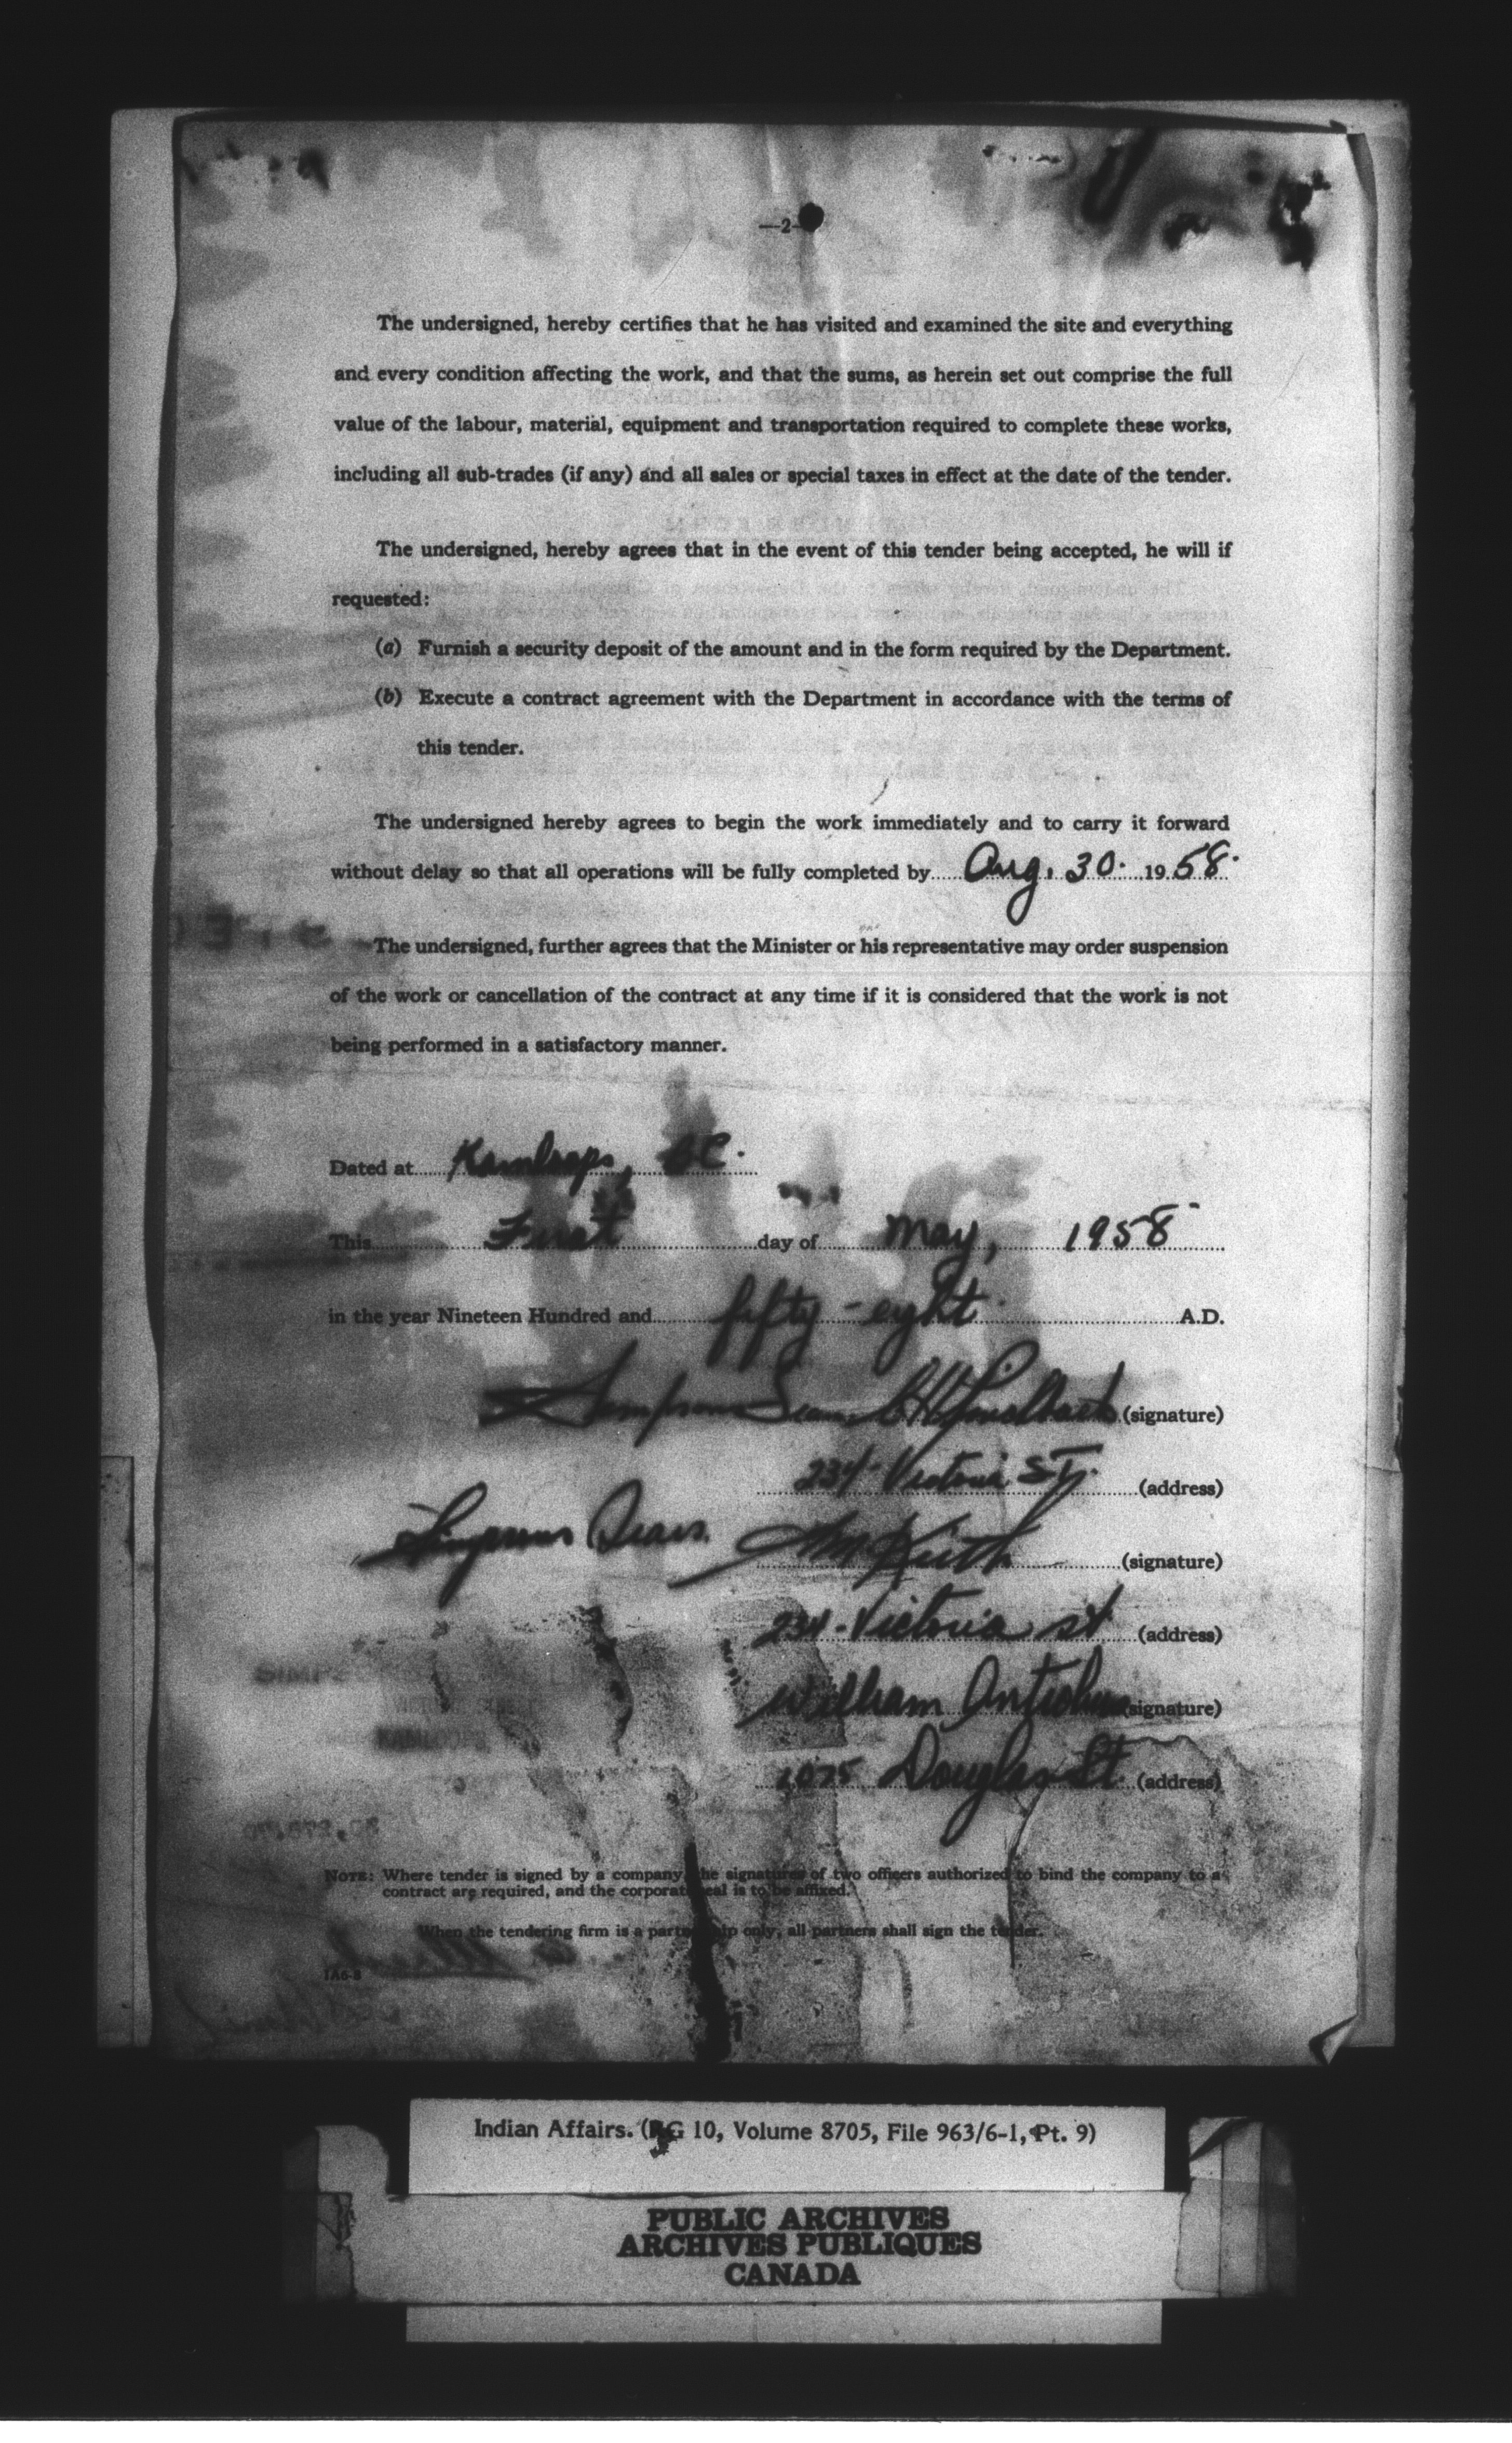 —2—
The undersigned, hereby certifies that he has visited and examined the site and everything
and every condition affecting the work, and that the sums, as herein set out comprise the full
value of the labour, material, equipment and transportation required to complete these works,
including all sub-trades (if any) and all sales or special taxes in effect at the date of the tender.
The undersigned, hereby agrees that in the event of this tender being accepted, he will if
requested:
(a) Furnish a security deposit of the amount and in the form required by the Department.
(b) Execute a contract agreement with the Department in accordance with the terms of
this tender.
The undersigned hereby agrees to begin the work immediately and to carry it forward
without delay so that all operations will be fully completed by Aug. 30. 1958.
The undersigned, further agrees that the Minister or his representative may order suspension
of the work or cancellation of the contract at any time if it is considered that the work is not
being performed in a satisfactory manner.
Dated at Kamloops, BC.
This First day of May, 1958
in the year Nineteen Hundred and fifty-eight A.D.
Simpsons Sears (signature)
234 - Victoria ST. (address)
Simpsons Sears. Keith (signature)
234 - Victoria St (address)
William (signature)
1075 Douglas St. (address)
NOTE: Where tender is signed by a company, the signatures of two officers authorized to bind the company to a
contract are required, and the corporate seal is to be affixed.
When the tendering firm is a partnership only, all partners shall sign the tender.
IA6-8
Indian Affairs. (RG 10, Volume 8705, File 963/6-1, Pt. 9)
PUBLIC ARCHIVES
ARCHIVES PUBLIQUES
CANADA